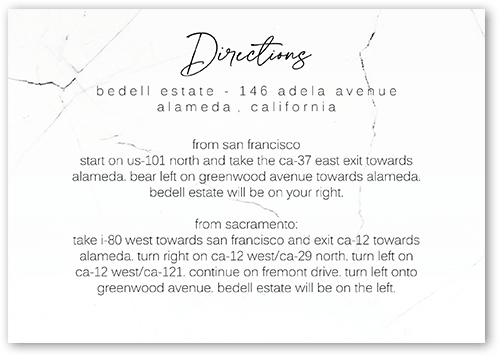 Directions
bedell estate - 146 adela avenue
alameda, california
from san francisco
start on us-101 north and take the ca-37 east exit towards
alameda. bear left on greenwood avenue towards alameda.
bedell estate will be on your right.
from sacramento:
take i-80 west towards san francisco and exit ca-12 towards
alameda. turn right on ca-12 west/ca-29 north. turn left on
ca-12 west/ca-121. continue on fremont drive. turn left onto
greenwood avenue. bedell estate will be on the left.